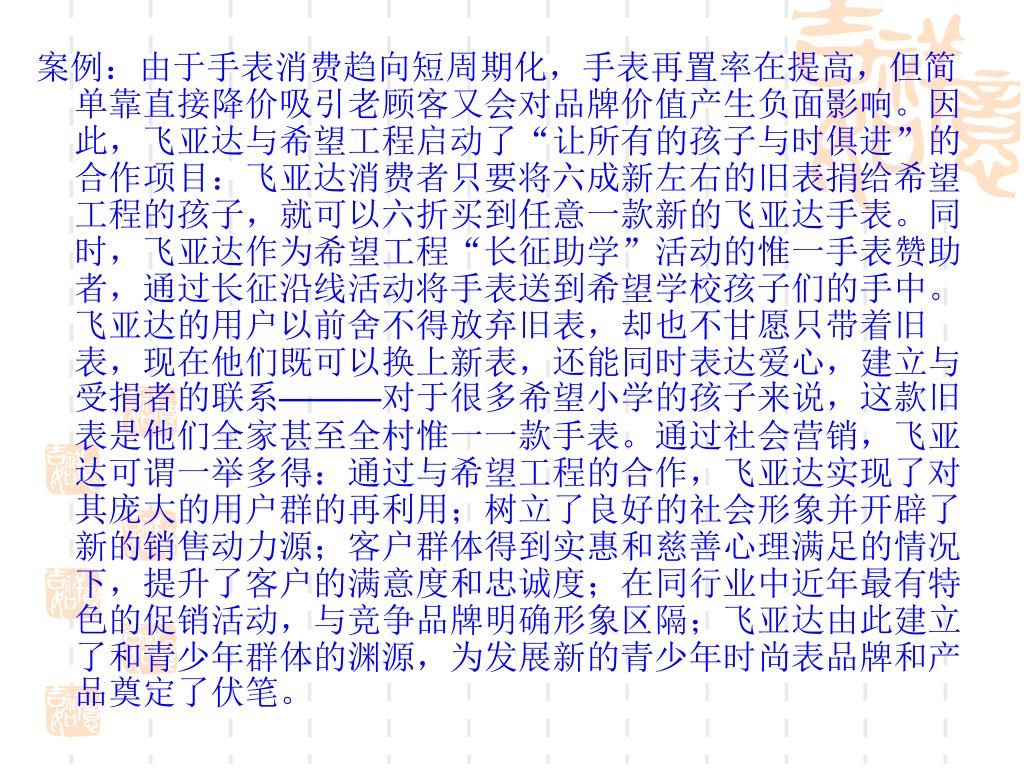 案例：由于手表消费趋向短周期化，手表再置率在提高，但简
单靠直接降价吸引老顾客又会对品牌价值产生负面影响。因
此，飞亚达与希望工程启动了“让所有的孩子与时俱进”的
合作项目：飞亚达消费者只要将六成新左右的旧表捐给希望
工程的孩子，就可以六折买到任意一款新的飞亚达手表。同
时，飞亚达作为希望工程“长征助学”活动的惟一手表赞助
者，通过长征沿线活动将手表送到希望学校孩子们的手中。
飞亚达的用户以前舍不得放弃旧表，却也不甘愿只带着旧
表，现在他们既可以换上新表，还能同时表达爱心，建立与
受捐者的联系———对于很多希望小学的孩子来说，这款旧
表是他们全家甚至全村惟一一款手表。通过社会营销，飞亚
达可谓一举多得：通过与希望工程的合作，飞亚达实现了对
其庞大的用户群的再利用；树立了良好的社会形象并开辟了
新的销售动力源；客户群体得到实惠和慈善心理满足的情况
下，提升了客户的满意度和忠诚度；在同行业中近年最有特
色的促销活动，与竞争品牌明确形象区隔；飞亚达由此建立
了和青少年群体的渊源，为发展新的青少年时尚表品牌和产
品奠定了伏笔。